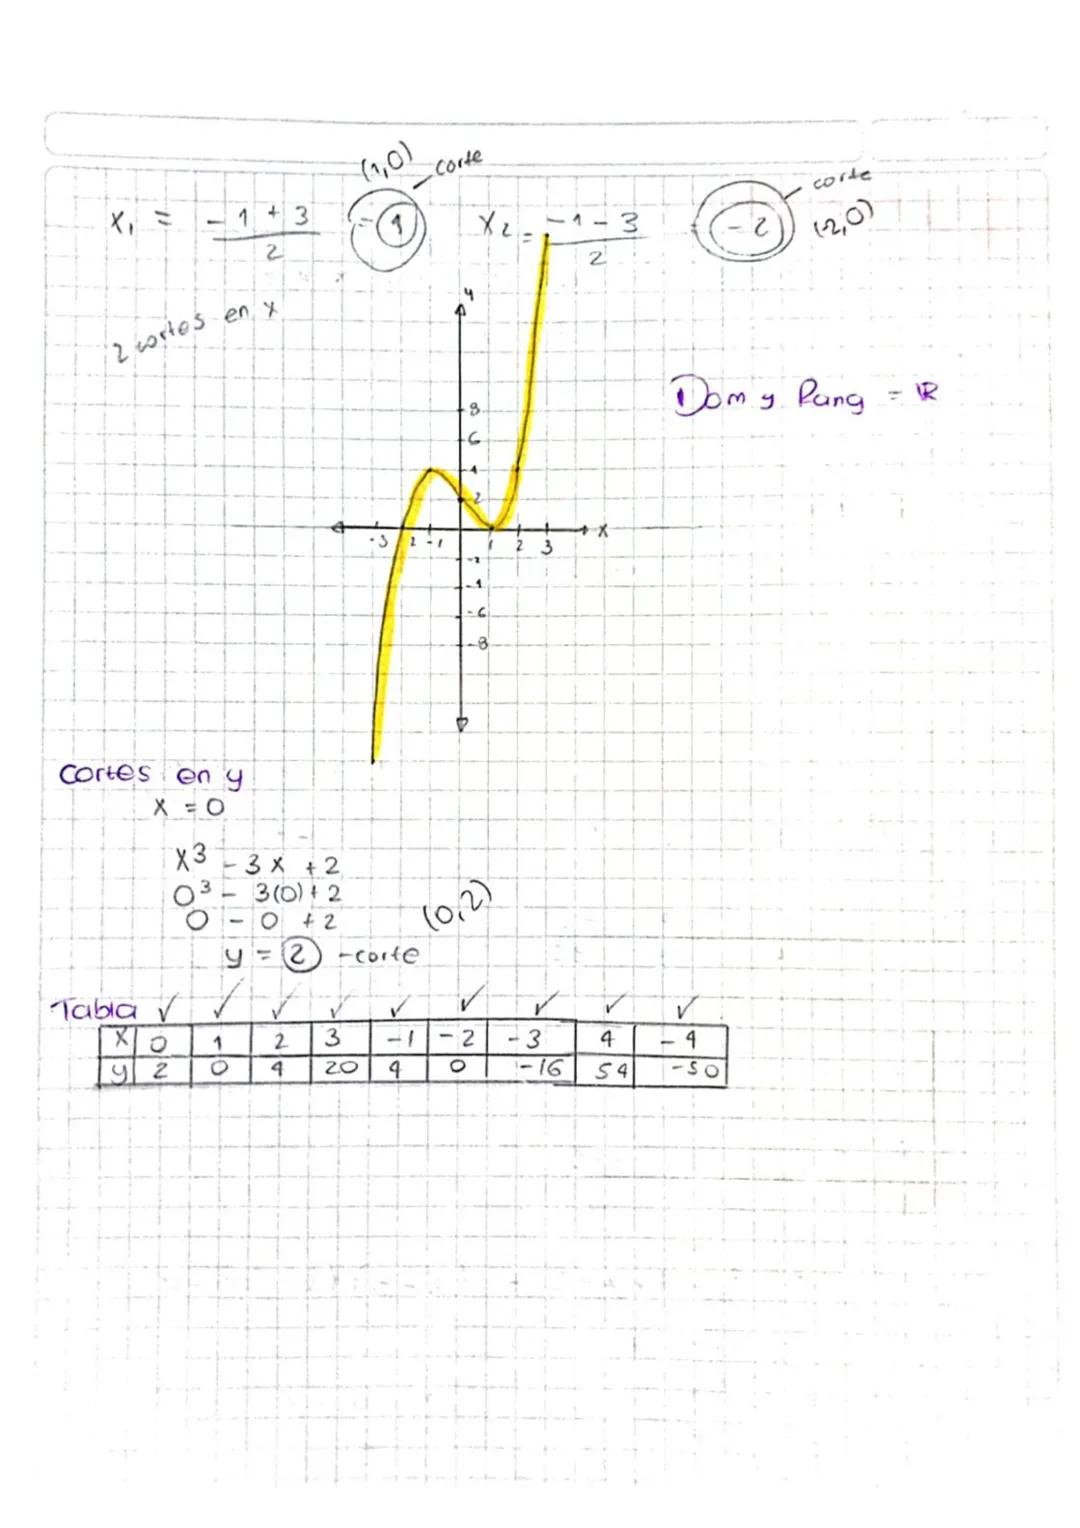 (1,0) corte
corte
x₁ = -1 + 3 / 2 = 1
x₂ = -1 - 3 / 2 = -2 (-2,0)
2 cortes en x
y
Dom y Rang = ℝ
8
6
4
2
-3 -2 -1 1 2 3 x
-2
-4
-6
-8
Cortes en y
x = 0
x³ - 3x + 2
0³ - 3(0) + 2
0 - 0 + 2
(0,2)
y = 2 - corte
Tabla ✓ ✓ ✓ ✓ ✓ ✓ ✓ ✓ ✓
x 0 1 2 3 -1 -2 -3 4 -4
y 2 0 4 20 4 0 -16 54 -50